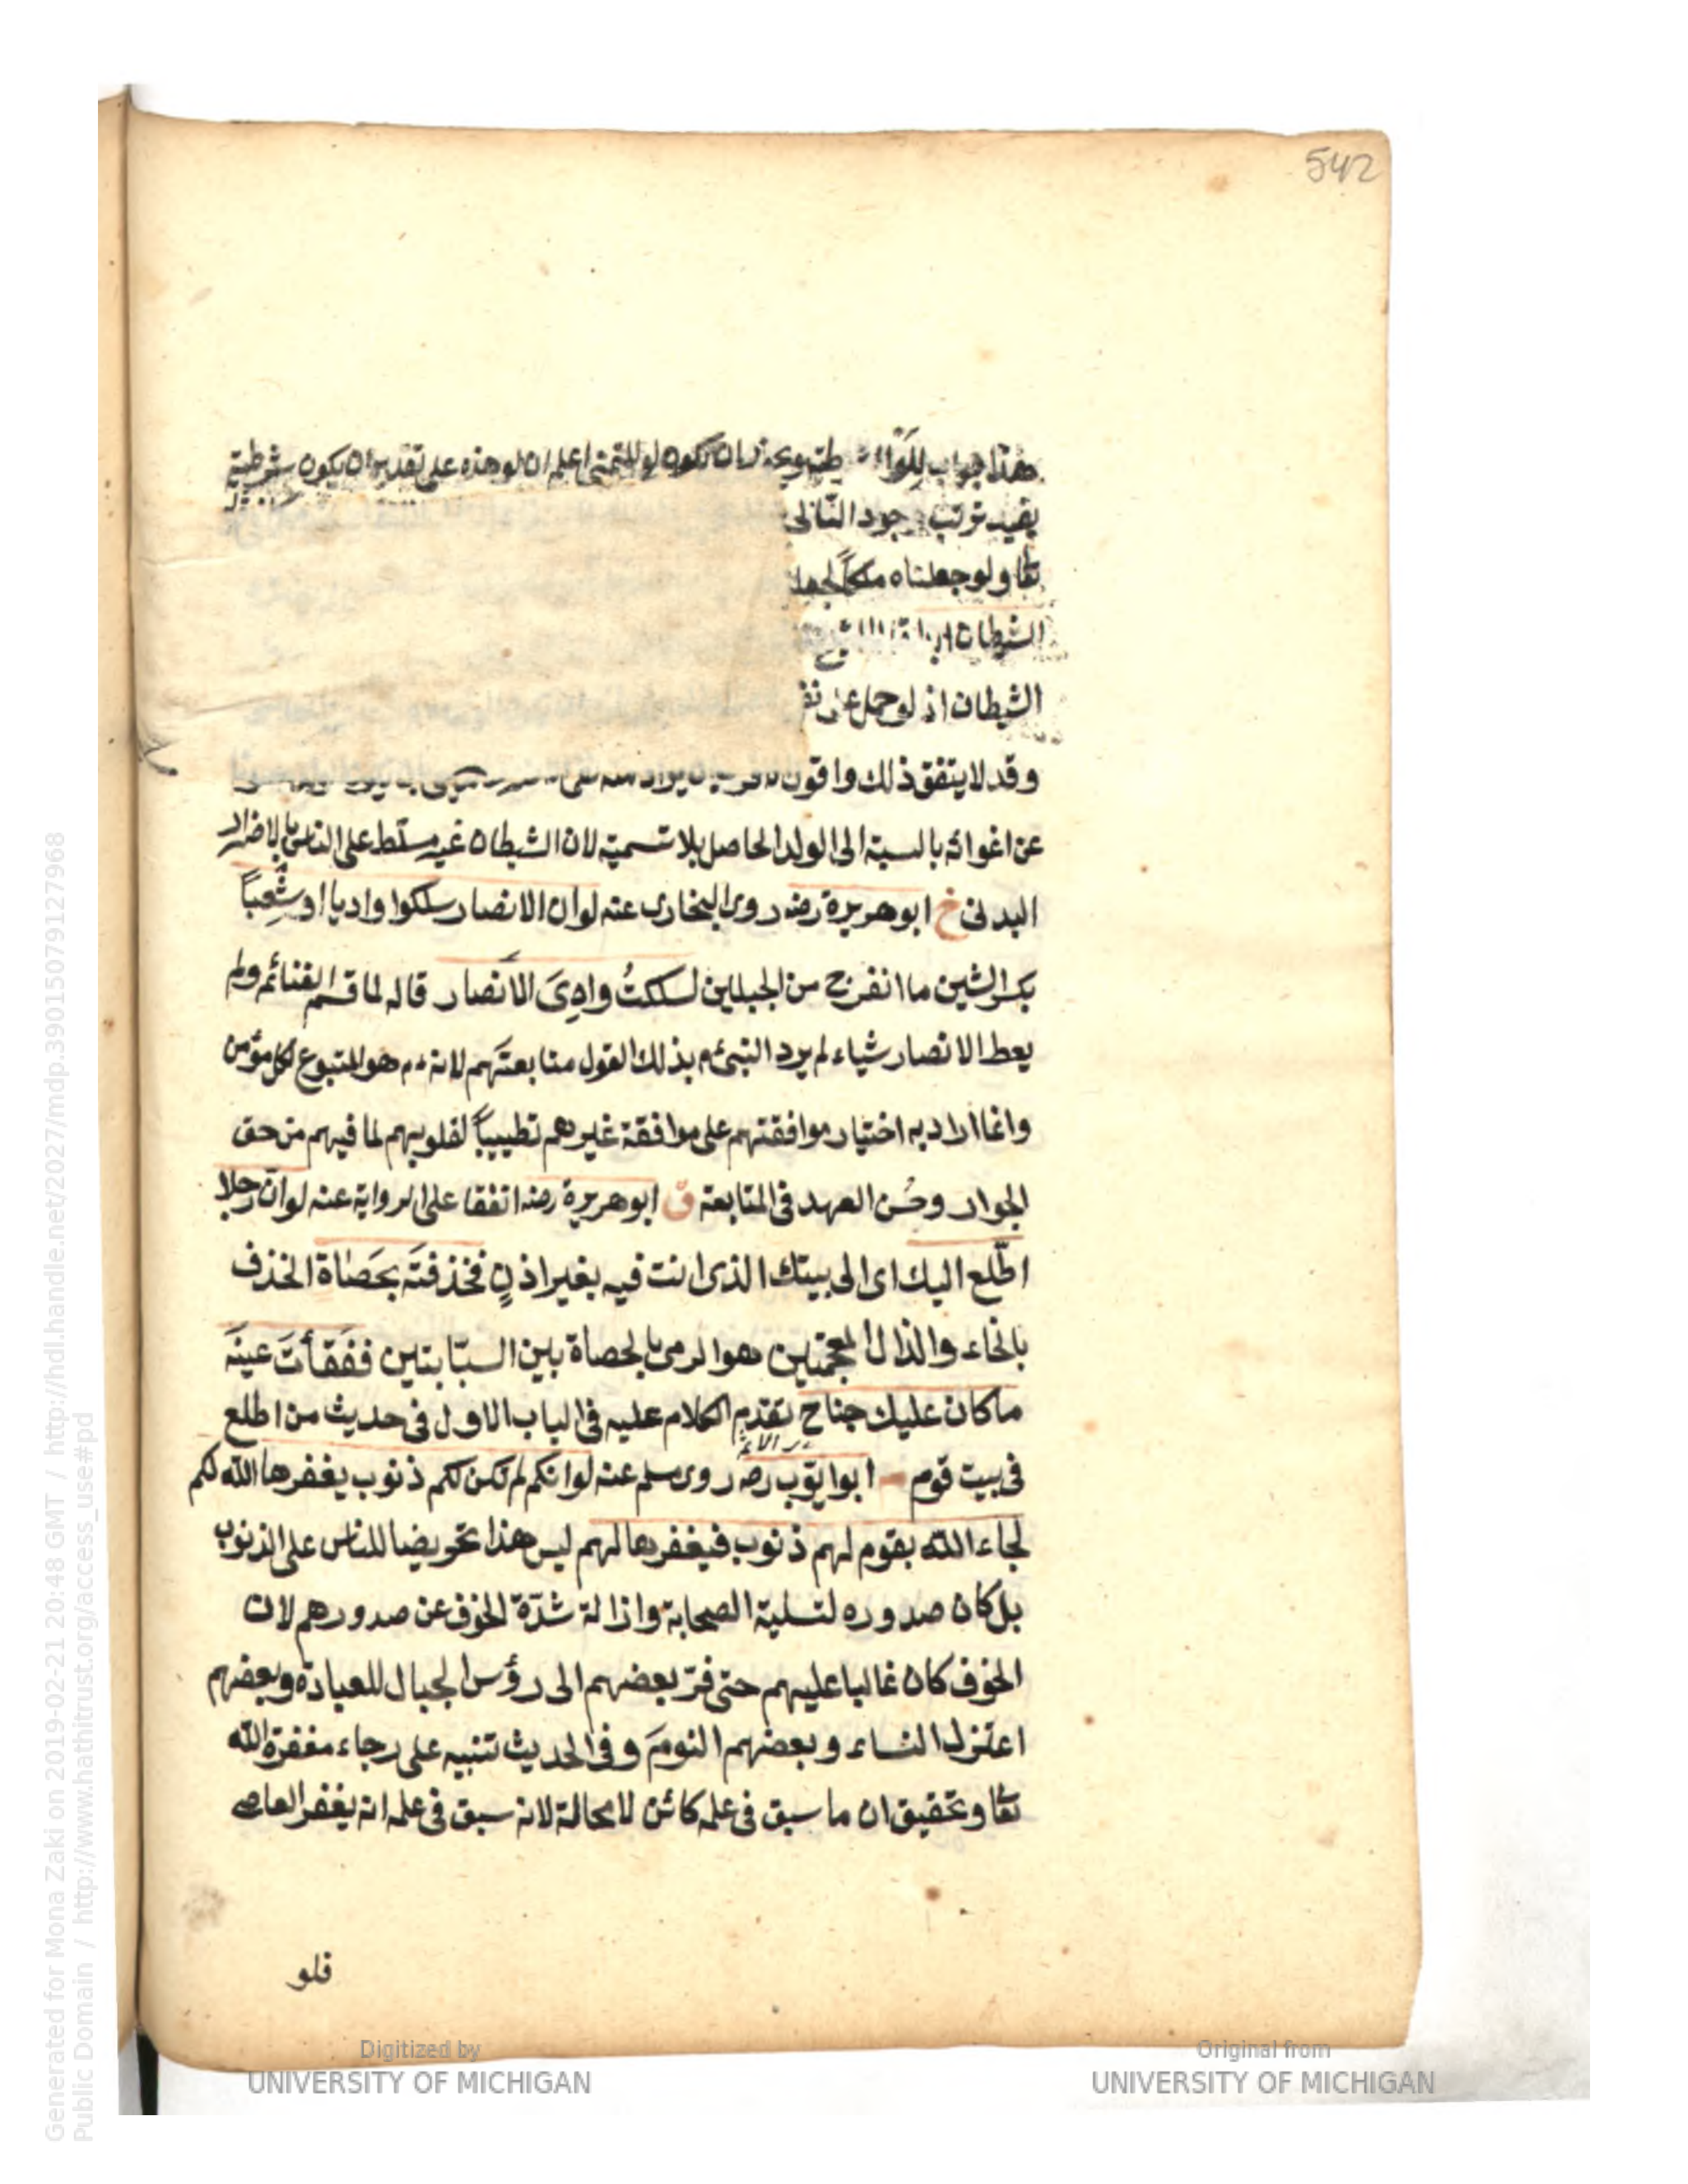 542
هذا جواب للو طية ويجوز ان تكون لو للتمني اعلم ان لو هذه على تقدير ان يكون شرطية
يفيد ترتب وجود الثاني
تعا ولو جعلناه ملكاً لجعلنا
الشيطان
الشيطان اذ لو حمل على نفى
وقد لا يتفق ذلك واقول
عن اغوائه بالنسبة الى الولد الحاصل بلا تسمية لان الشيطان غير مسلط على الناس بالاضرار
البدنى خ ابو هريرة رضه روى البخارى عنه لو ان الانصار سلكوا واديا او شِعباً
بكسر الشين ما انفرج من الجبلين لسلكتُ وادِىَ الانصار قاله لما قسم الغنائم ولم
يعط الانصار شياء لم يرد النبى م بذلك القول متابعتهم لانه م هو المتبوع لكل مؤمن
وانما اراد به اختيار موافقتهم على موافقة غيرهم تطييباً لقلوبهم لما فيهم من حق
الجوار وحُسن العهد فى المتابعة ق ابو هريرة رضه اتفقا على الرواية عنه لو انّ رجلا
اطّلع اليك اى الى بيتك الذى انت فيه بغير اذنٍ فخذفتَه بحَصَاة الخذف
بالخاء والذال المعجمتين هو الرمى بالحصاة بين السبّابتين ففَقأتَ عينَه
ما كان عليك جناح تقدم الكلام عليه فى الباب الاول فى حديث من اطلع
فى بيت قوم ابو ايّوب رضه روى مسلم عنه لو انكم لم تكن لكم ذنوب يغفرها الله لكم
لجاء الله بقوم لهم ذنوب فيغفرها لهم ليس هذا تحريضا للناس على الذنوب
بل كان صدوره لتسلية الصحابة وازالة شدّة الخوف عن صدورهم لان
الخوف كان غالبا عليهم حتى فرّ بعضهم الى رؤس الجبال للعبادة وبعضهم
اعتزل النساء وبعضهم النومَ وفى الحديث تنبيه على رجاء مغفرة الله
تعا وتحقيق ان ما سبق فى علمه كائن لا محالة لانه سبق فى علمه انه يغفر العاصى
فلو
Digitized by
UNIVERSITY OF MICHIGAN
Original from
UNIVERSITY OF MICHIGAN
Generated for Mona Zaki on 2019-02-21 20:48 GMT / http://hdl.handle.net/2027/mdp.39015079127968
Public Domain / http://www.hathitrust.org/access_use#pd